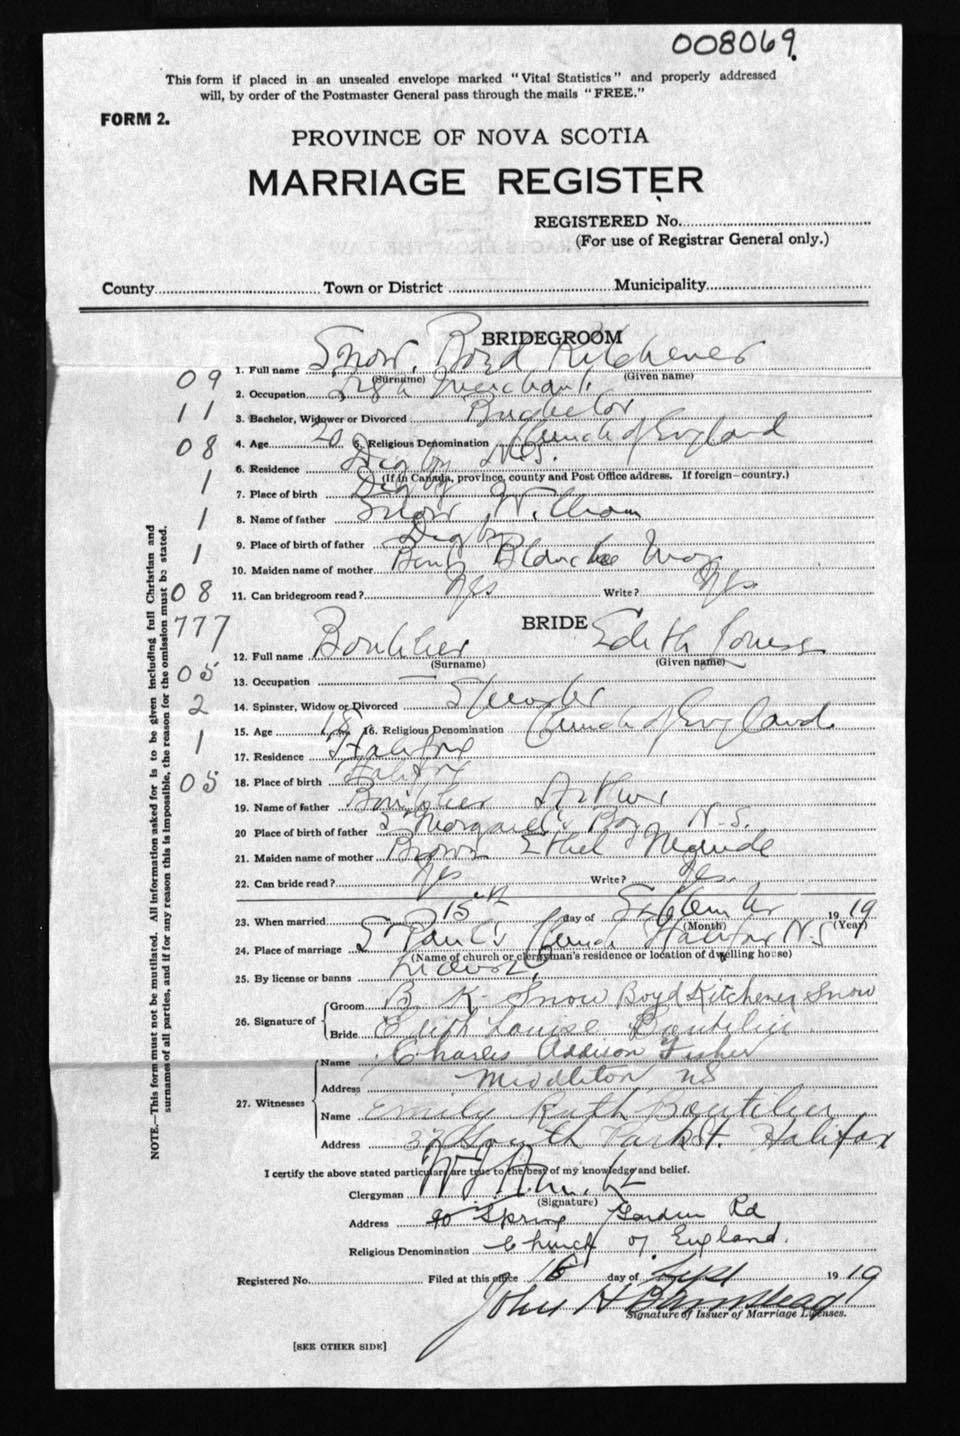 008069
This form if placed in an unsealed envelope marked "Vital Statistics" and properly addressed
will, by order of the Postmaster General pass through the mails "FREE."
FORM 2.
PROVINCE OF NOVA SCOTIA
MARRIAGE REGISTER
REGISTERED No.
(For use of Registrar General only.)
County Town or District Municipality
BRIDEGROOM
1. Full name Snow, Boyd Kitchener
(Surname) (Given name)
09 2. Occupation Fish Merchant
11 3. Bachelor, Widower or Divorced Bachelor
08 4. Age 20 5. Religious Denomination Church of England
6. Residence Digby N.S.
(If in Canada, province, county and Post Office address. If foreign—country.)
1 7. Place of birth Digby
1 8. Name of father Snow William
1 9. Place of birth of father Digby
10. Maiden name of mother Blanche May
08 11. Can bridegroom read? Yes Write? Yes
777 BRIDE
12. Full name Boutilier Edith Louise
(Surname) (Given name)
05 13. Occupation —
2 14. Spinster, Widow or Divorced Spinster
1 15. Age 18 16. Religious Denomination Church of England
17. Residence Halifax
05 18. Place of birth Halifax
19. Name of father Boutilier Arthur
20 Place of birth of father St Margaret's Bay N.S.
21. Maiden name of mother Brown Ethel
22. Can bride read? Yes Write? Yes
23. When married 15th day of September 1919
(Month) (Year)
24. Place of marriage St Paul's Church Halifax N.S
(Name of church or clergyman's residence or location of dwelling house)
25. By license or banns License
26. Signature of Groom B K Snow Boyd Kitchener Snow
Bride Edith Louise Boutilier
27. Witnesses Name Charles Addison Fisher
Address Middleton NS
Name Emily Ruth Boutilier
Address South Park St. Halifax
I certify the above stated particulars are true to the best of my knowledge and belief.
Clergyman
(Signature)
Address 90 Spring Garden Rd
Religious Denomination Church of England.
Registered No. Filed at this office 16 day of Sept 1919
John H
Signature of Issuer of Marriage Licenses.
[SEE OTHER SIDE]
NOTE.—This form must not be mutilated. All information asked for is to be given including full Christian and
surnames of all parties, and if for any reason this is impossible, the reason for the omission must be stated.